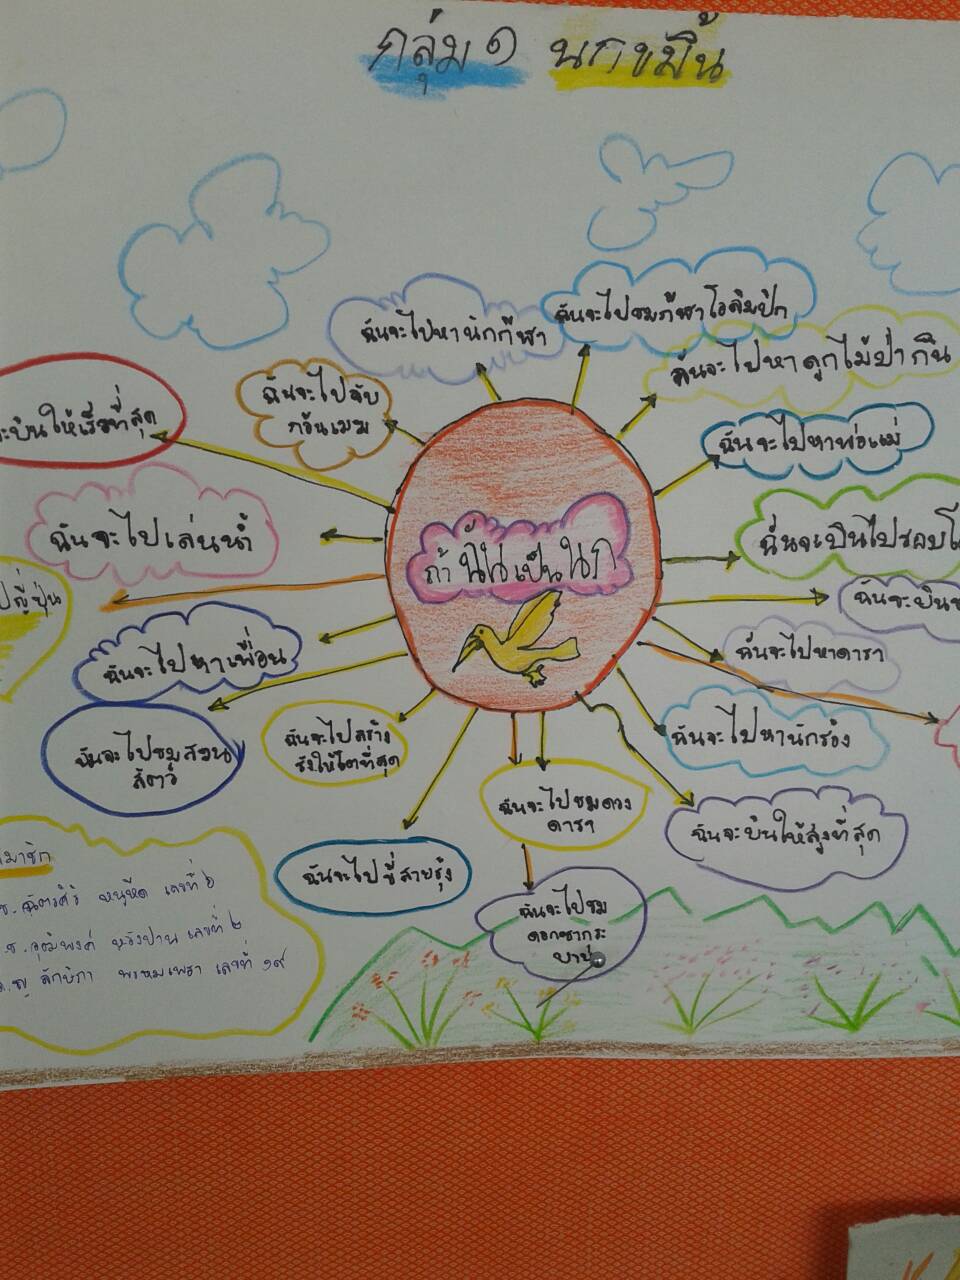 กลุ่ม ๑ นกขมิ้น
ฉันจะไปหานักกีฬา
ฉันจะไปชมกีฬาโอลิมปิก
ฉันจะไปหาลูกไม้ป่ากิน
ฉันจะไปจับ
ก้อนเมฆ
จะบินให้เร็วที่สุด
ฉันจะไปหาพ่อแม่
ฉันจะไปเล่นน้ำ
ถ้าฉันเป็นนก
ฉันจะบินไปรอบโ
ไปญี่ปุ่น
ฉันจะบิน
ฉันจะไปหาเพื่อน
ฉันจะไปหาดารา
ฉันจะไปชมสวน
สัตว์
ฉันจะไปสร้าง
รังให้โตที่สุด
ฉันจะไปหานักร้อง
ฉันจะไปชมดวง
ดารา
ฉันจะบินให้สูงที่สุด
ฉันจะไปขี่สายรุ้ง
ฉันจะไปชม
ดอกซากุระ
บาน
สมาชิก
ช. ฉัตรศิริ เลขที่ ๖
ช. เลขที่ ๒
ญ ลักษิกา พรหมเพรา เลขที่ ๑๙